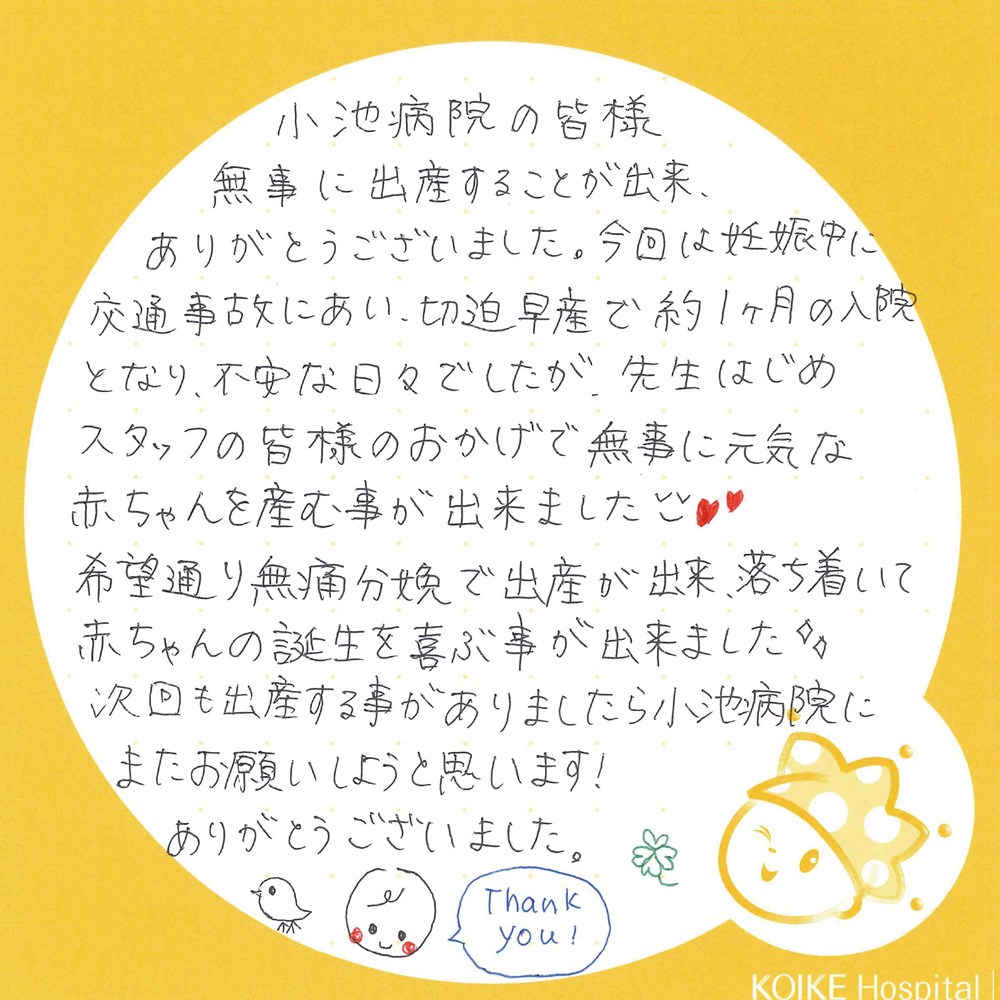 小池病院の皆様
無事に出産することが出来、
ありがとうございました。今回は妊娠中に
交通事故にあい、切迫早産で約1ヶ月の入院
となり、不安な日々でしたが、先生はじめ
スタッフの皆様のおかげで無事に元気な
赤ちゃんを産む事が出来ました
希望通り無痛分娩で出産が出来、落ち着いて
赤ちゃんの誕生を喜ぶ事が出来ました
次回も出産する事がありましたら小池病院に
またお願いしようと思います!
ありがとうございました。
Thank
you!
KOIKE Hospital